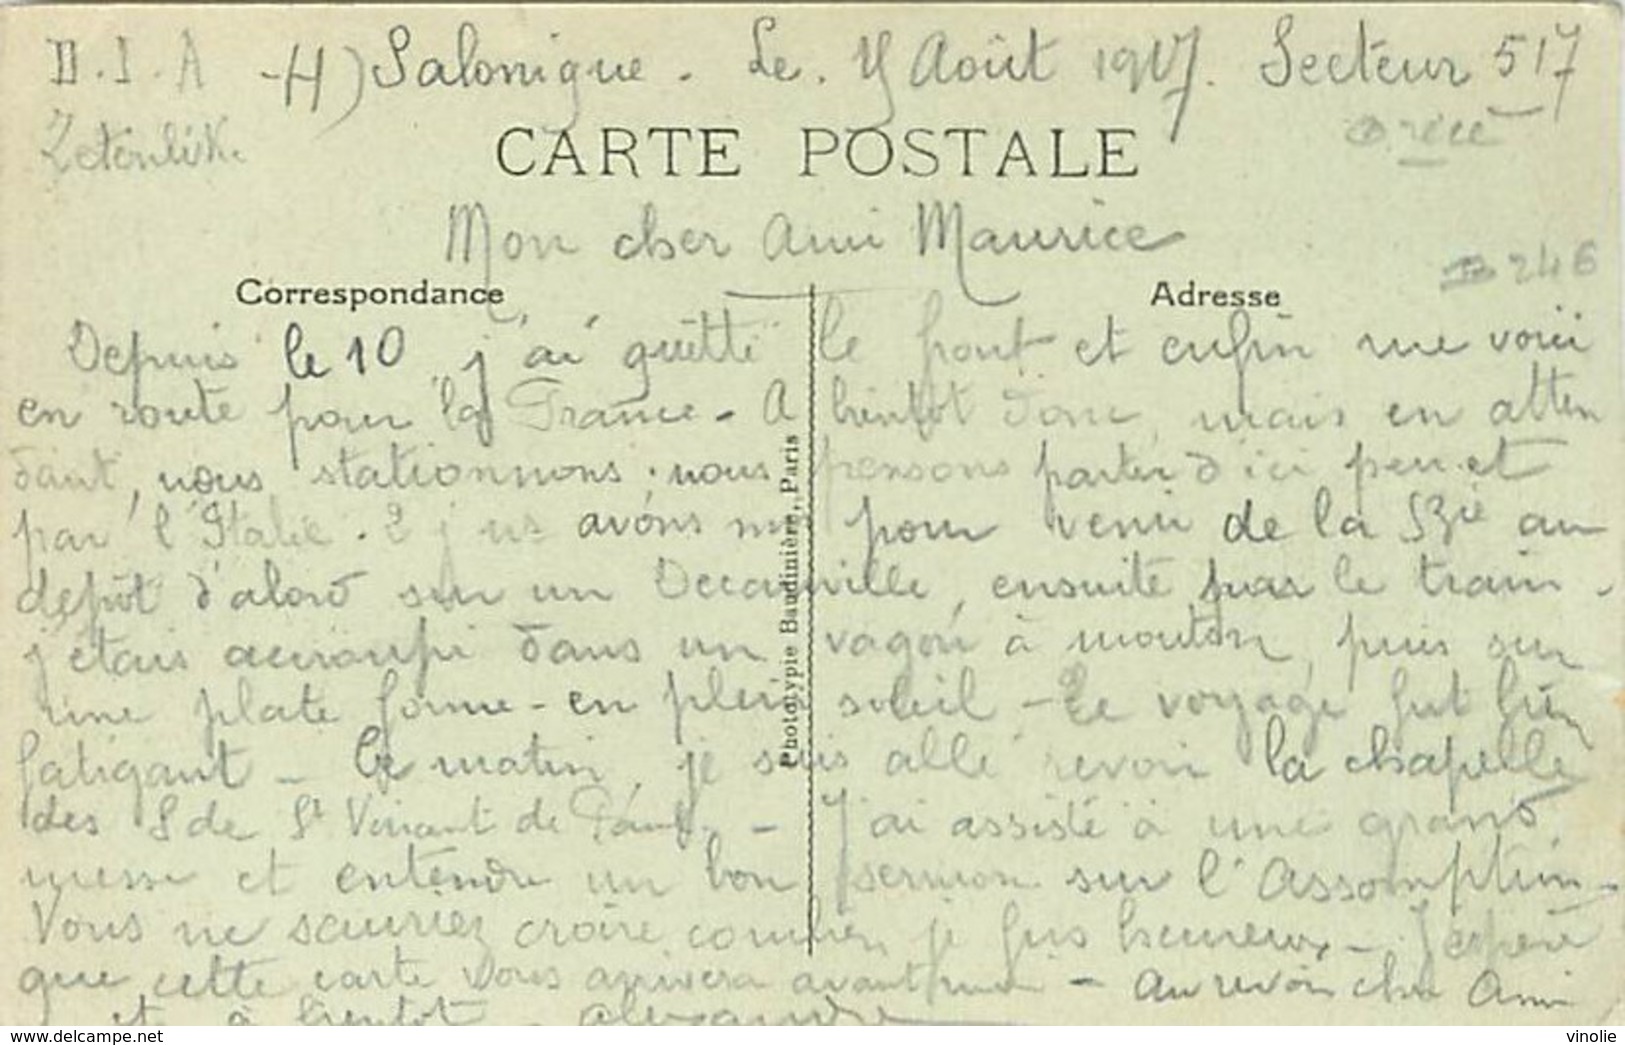 D.I.A - H) Salonique. Le. 15 Août 1917. Secteur 517
Zetenlik. Grèce
CARTE POSTALE
Mon cher Ami Maurice
B 246
Correspondance Adresse
Depuis le 10 j'ai quitté le front et enfin me voici
en route pour la France - A bientôt donc, mais en atten
dant, nous stationnons. nous pensons partir d'ici peu et
par l'Italie. 2 jrs avons mis pour venir de la Cie au
depôt d'abord sur un Decauville, ensuite par le train.
j'étais accroupi dans un vagon à mouton, puis sur
une plate forme - en plein soleil - Le voyage fut bien
fatigant - Ce matin, je suis allé revoir la chapelle
des S de St Vincent de Paul. - J'ai assisté à une grand
messe et entendre un bon sermon sur l'Assomption -
Vous ne sauriez croire combien je fus heureux - J'espère
que cette carte vous arrivera avant - Au revoir cher Ami
et à bientôt - Alexandre
Phototypie Baudinière, Paris
https://www.delcampe.net
vinolie